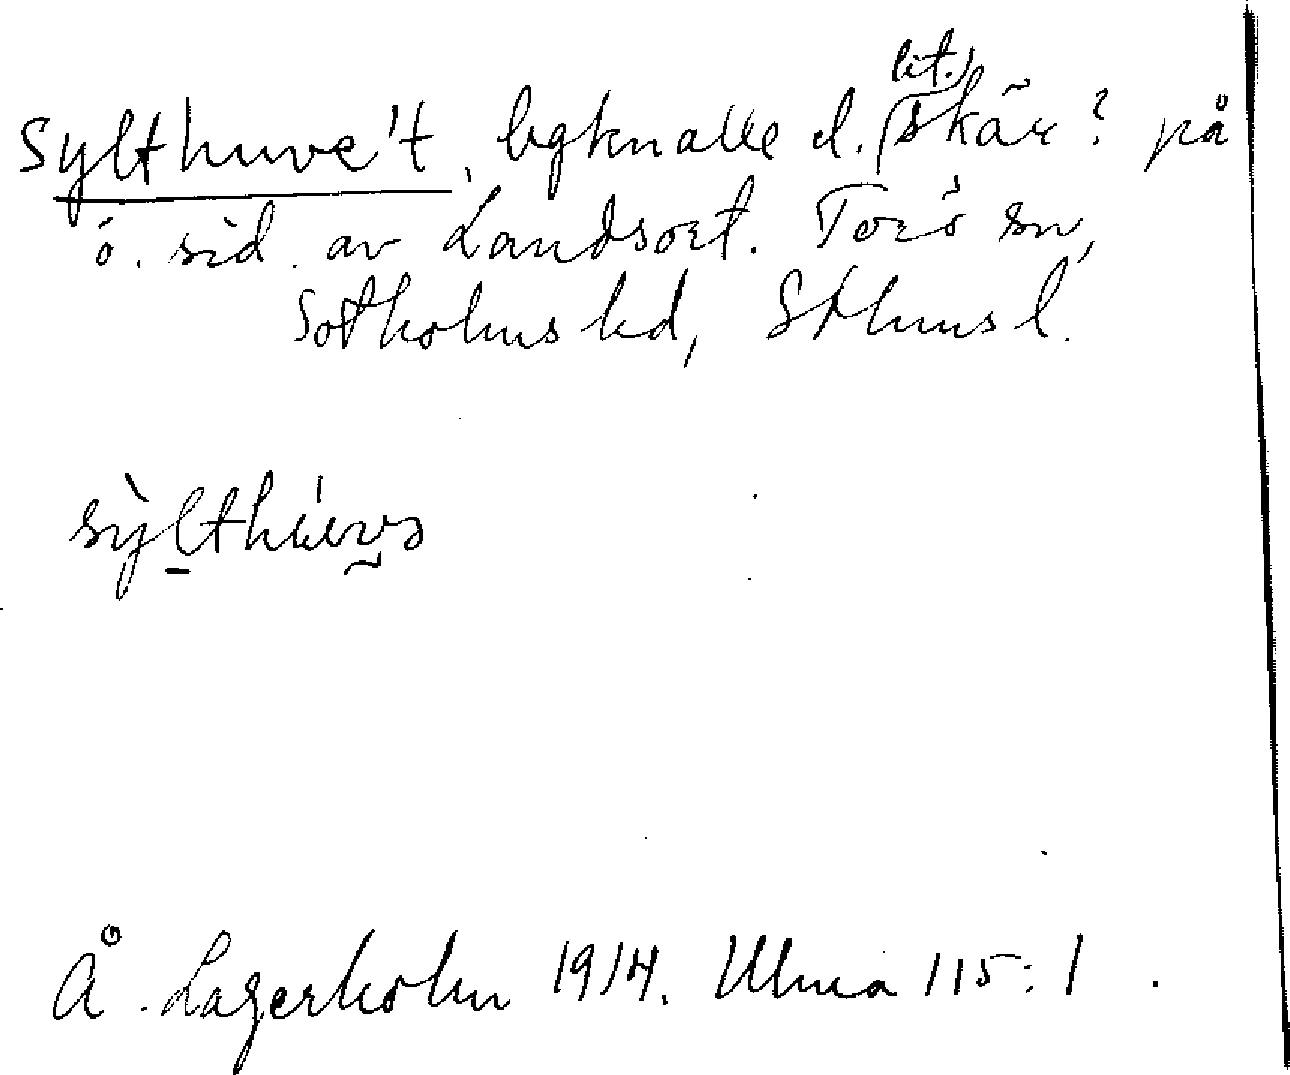 Sylthuve't, bgknalle el. lit. skär? på
ö. sid. av Landsort. Torö sn,
Sotholms hd, Sthlms l.
sỳlthúvə
Å. Lagerholm 1914. Ulma 115:1.